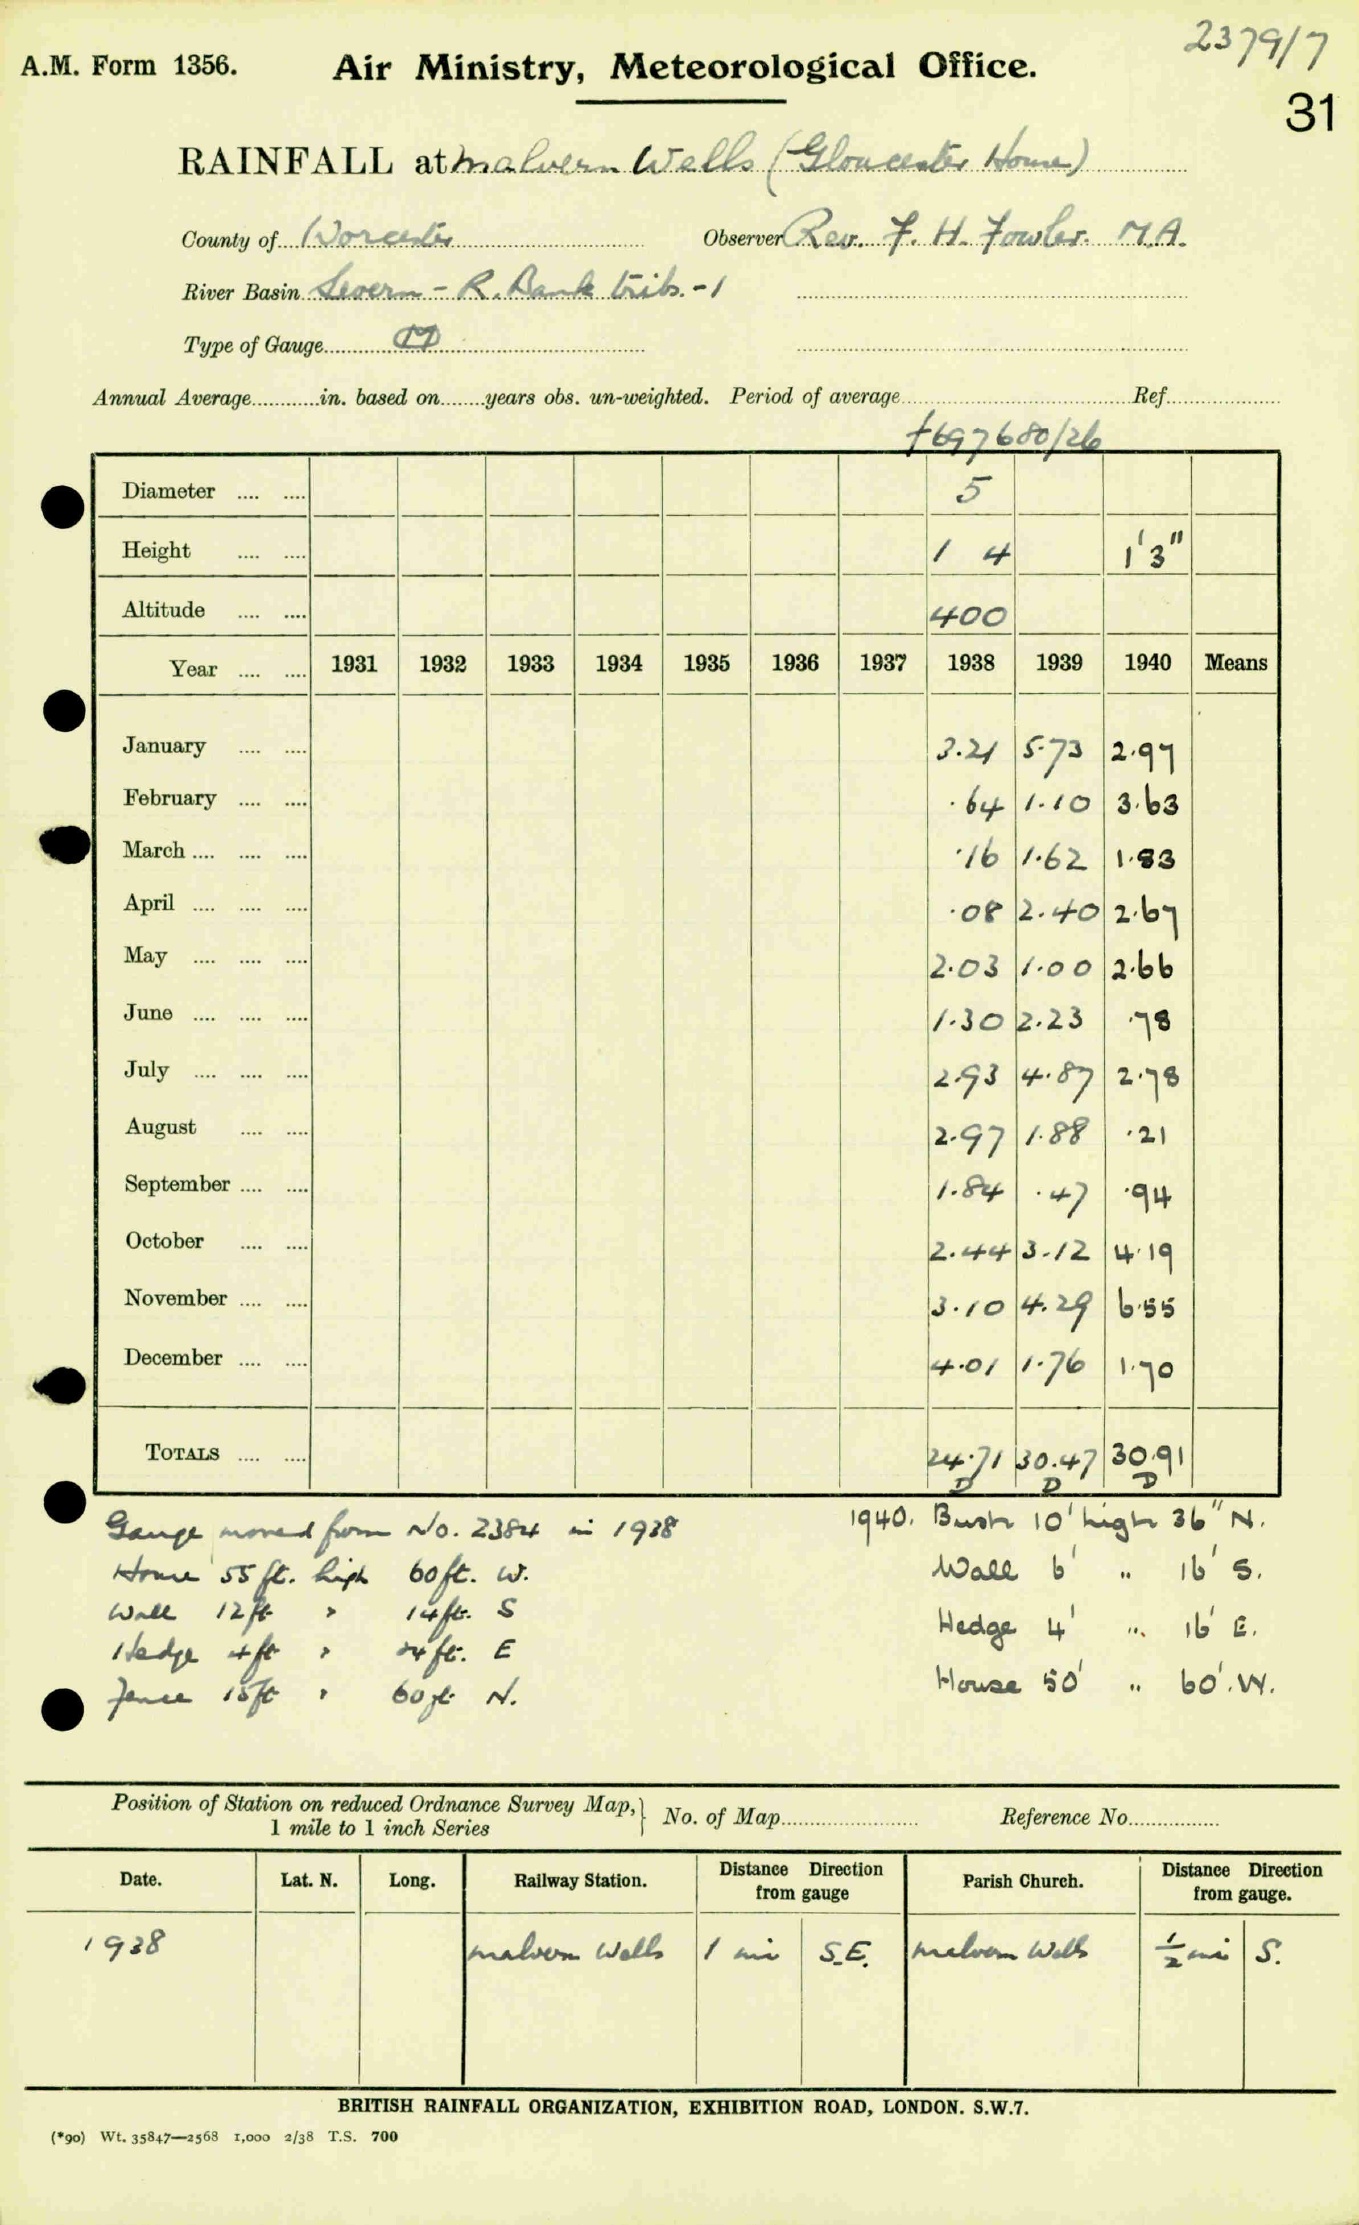 2379/7
A.M. Form 1356. Air Ministry, Meteorological Office.
31
RAINFALL at Malvern Wells (Gloucester House)
County of Worcester Observer Rev. F. H. Fowler. M.A.
River Basin Severn - R. Bank tribs. - 1
Type of Gauge M
Annual Average in. based on years obs. un-weighted. Period of average Ref.
t697680/26
Diameter 5
Height 1 4 1'3"
Altitude 400
Year 1931 1932 1933 1934 1935 1936 1937 1938 1939 1940 Means
January 3.21 5.73 2.97
February .64 1.10 3.63
March .16 1.62 1.83
April .08 2.40 2.67
May 2.03 1.00 2.66
June 1.30 2.23 .78
July 2.93 4.87 2.78
August 2.97 1.88 .21
September 1.84 .47 .94
October 2.44 3.12 4.19
November 3.10 4.29 6.55
December 4.01 1.76 1.70
TOTALS 24.71 30.47 30.91
D D D
Gauge moved from No. 2384 in 1938
House 55 ft. high 60 ft. W.
Wall 12 ft " 14 ft. S
Hedge 4 ft " 24 ft. E
Fence 15 ft " 60 ft N.
1940. Bush 10' high 36" N.
Wall 6' " 16' S.
Hedge 4' " 16' E.
House 50' " 60'. W.
Position of Station on reduced Ordnance Survey Map, 1 mile to 1 inch Series } No. of Map Reference No.
Date. Lat. N. Long. Railway Station. Distance Direction from gauge Parish Church. Distance Direction from gauge.
1938 Malvern Wells 1 mi S.E. Malvern Wells ½ mi S.
BRITISH RAINFALL ORGANIZATION, EXHIBITION ROAD, LONDON. S.W.7.
(*90) Wt. 35847—2568 1,000 2/38 T.S. 700